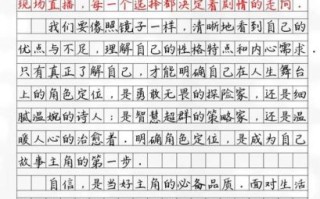 现场直播，每一个选择都决定着剧情的走向。
我们要像照镜子一样，清晰地看到自己的
优点与不足，理解自己的性格特点和内心需求。
只有真正了解自己，才能明确自己在人生舞台
上的角色定位，是勇敢无畏的探险家，还是细
腻温婉的诗人；是智慧超群的策略家，还是温
暖人心的治愈着。明确角色定位，是成为自己
故事主角的第一步。
自信，是当好主角的必备品质。面对生活